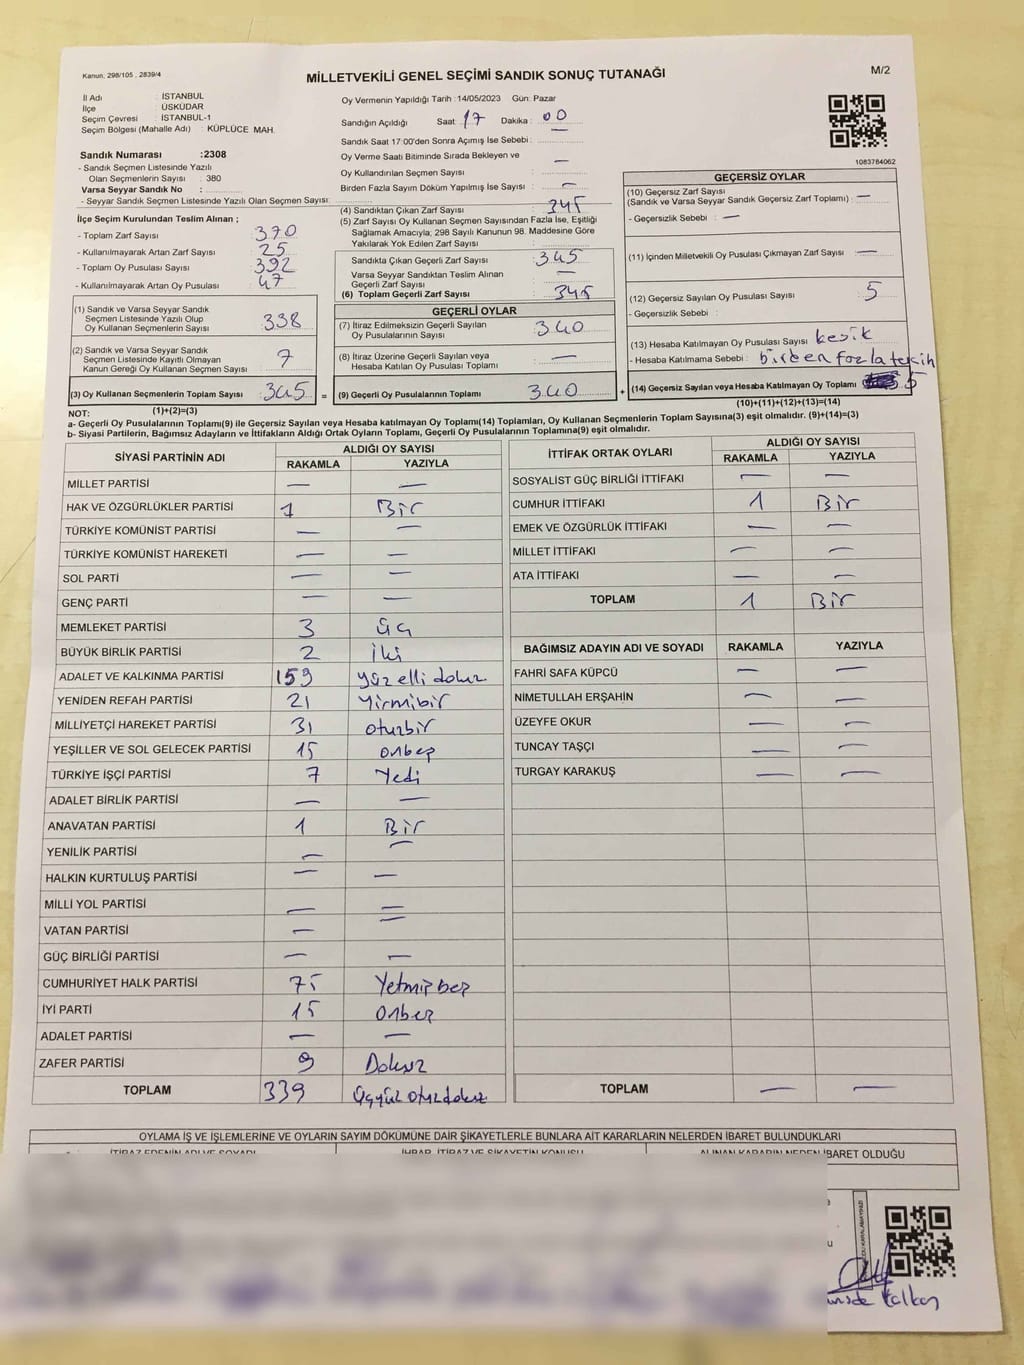 Kanun; 298/105 , 2839/4
MİLLETVEKİLİ GENEL SEÇİMİ SANDIK SONUÇ TUTANAĞI
M/2
İl Adı : İSTANBUL
İlçe : ÜSKÜDAR
Seçim Çevresi : İSTANBUL-1
Seçim Bölgesi (Mahalle Adı) : KÜPLÜCE MAH.
Sandık Numarası :2308
- Sandık Seçmen Listesinde Yazılı
Olan Seçmenlerin Sayısı : 380
Varsa Seyyar Sandık No :
- Seyyar Sandık Seçmen Listesinde Yazılı Olan Seçmen Sayısı:
İlçe Seçim Kurulundan Teslim Alınan ;
- Toplam Zarf Sayısı : 370
- Kullanılmayarak Artan Oy Zarf Sayısı : 25
- Toplam Oy Pusulası Sayısı : 392
- Kullanılmayarak Artan Oy Pusulası : 47
(1) Sandık ve Varsa Seyyar Sandık
Seçmen Listesinde Yazılı Olup
Oy Kullanan Seçmenlerin Sayısı : 338
(2) Sandık ve Varsa Seyyar Sandık
Seçmen Listesinde Kayıtlı Olmayan
Kanun Gereği Oy Kullanan Seçmen Sayısı : 7
(3) Oy Kullanan Seçmenlerin Toplam Sayısı : 345
(1)+(2)=(3)
Oy Vermenin Yapıldığı Tarih :14/05/2023 Gün: Pazar
Sandığın Açıldığı Saat: 17 Dakika : 00
Sandık Saat 17:00'den Sonra Açılmış İse Sebebi :
Oy Verme Saati Bitiminde Sırada Bekleyen ve
Oy Kullandırılan Seçmen Sayısı : —
Birden Fazla Sayım Döküm Yapılmış İse Sayısı : —
(4) Sandıktan Çıkan Zarf Sayısı : 345
(5) Zarf Sayısı Oy Kullanan Seçmen Sayısından Fazla İse, Eşitliği
Sağlamak Amacıyla; 298 Sayılı Kanunun 98. Maddesine Göre
Yakılarak Yok Edilen Zarf Sayısı :
Sandıkta Çıkan Geçerli Zarf Sayısı : 345
Varsa Seyyar Sandıktan Teslim Alınan
Geçerli Zarf Sayısı : —
(6) Toplam Geçerli Zarf Sayısı : 345
GEÇERLİ OYLAR
(7) İtiraz Edilmeksizin Geçerli Sayılan
Oy Pusulasının Sayısı : 340
(8) İtiraz Üzerine Geçerli Sayılan veya
Hesaba Katılan Oy Pusulası Toplamı : —
= (9) Geçerli Oy Pusulalarının Toplamı : 340 +
1083784062
GEÇERSİZ OYLAR
(10) Geçersiz Zarf Sayısı
(Sandık ve Varsa Seyyar Sandık Geçersiz Zarf Toplamı) : —
- Geçersizlik Sebebi : —
(11) İçinden Milletvekili Oy Pusulası Çıkmayan Zarf Sayısı : —
(12) Geçersiz Sayılan Oy Pusulası Sayısı : 5
- Geçersizlik Sebebi :
(13) Hesaba Katılmayan Oy Pusulası Sayısı : kesik
- Hesaba Katılmama Sebebi : birden fazla tercih
(14) Geçersiz Sayılan veya Hesaba Katılmayan Oy Toplamı 5
(10)+(11)+(12)+(13)=(14)
NOT:
a- Geçerli Oy Pusulalarının Toplamı(9) ile Geçersiz Sayılan veya Hesaba katılmayan Oy Toplamı(14) Toplamları, Oy Kullanan Seçmenlerin Toplam Sayısına(3) eşit olmalıdır. (9)+(14)=(3)
b- Siyasi Partilerin, Bağımsız Adayların ve İttifakların Aldığı Ortak Oyların Toplamı, Geçerli Oy Pusulalarının Toplamına(9) eşit olmalıdır.
SİYASİ PARTİNİN ADI ALDIĞI OY SAYISI
RAKAMLA YAZIYLA
MİLLET PARTİSİ — —
HAK VE ÖZGÜRLÜKLER PARTİSİ 1 Bir
TÜRKİYE KOMÜNİST PARTİSİ — —
TÜRKİYE KOMÜNİST HAREKETİ — —
SOL PARTİ — —
GENÇ PARTİ — —
MEMLEKET PARTİSİ 3 üç
BÜYÜK BİRLİK PARTİSİ 2 iki
ADALET VE KALKINMA PARTİSİ 159 yüzelli dokuz
YENİDEN REFAH PARTİSİ 21 Yirmibir
MİLLİYETÇİ HAREKET PARTİSİ 31 oturbir
YEŞİLLER VE SOL GELECEK PARTİSİ 15 onbeş
TÜRKİYE İŞÇİ PARTİSİ 7 Yedi
ADALET BİRLİK PARTİSİ — —
ANAVATAN PARTİSİ 1 Bir
YENİLİK PARTİSİ — —
HALKIN KURTULUŞ PARTİSİ — —
MİLLİ YOL PARTİSİ — —
VATAN PARTİSİ — —
GÜÇ BİRLİĞİ PARTİSİ — —
CUMHURİYET HALK PARTİSİ 75 Yetmiş beş
İYİ PARTİ 15 onbeş
ADALET PARTİSİ — —
ZAFER PARTİSİ 9 Dokuz
TOPLAM 339 üçyüz otuzdokuz
İTTİFAK ORTAK OYLARI ALDIĞI OY SAYISI
RAKAMLA YAZIYLA
SOSYALİST GÜÇ BİRLİĞİ İTTİFAKI — —
CUMHUR İTTİFAKI 1 Bir
EMEK VE ÖZGÜRLÜK İTTİFAKI — —
MİLLET İTTİFAKI — —
ATA İTTİFAKI — —
TOPLAM 1 Bir
BAĞIMSIZ ADAYIN ADI VE SOYADI RAKAMLA YAZIYLA
FAHRİ SAFA KÜPCÜ — —
NİMETULLAH ERŞAHİN — —
ÜZEYFE OKUR — —
TUNCAY TAŞÇI — —
TURGAY KARAKUŞ — —
TOPLAM — —
OYLAMA İŞ VE İŞLEMLERİNE VE OYLARIN SAYIM DÖKÜMÜNE DAİR ŞİKAYETLERLE BUNLARA AİT KARARLARIN NELERDEN İBARET BULUNDUKLARI
İTİRAZ EDENİN ADI VE SOYADI İHBAR, İTİRAZ VE ŞİKAYETİN KONUSU ALINAN KARARIN NEDEN İBARET OLDUĞU